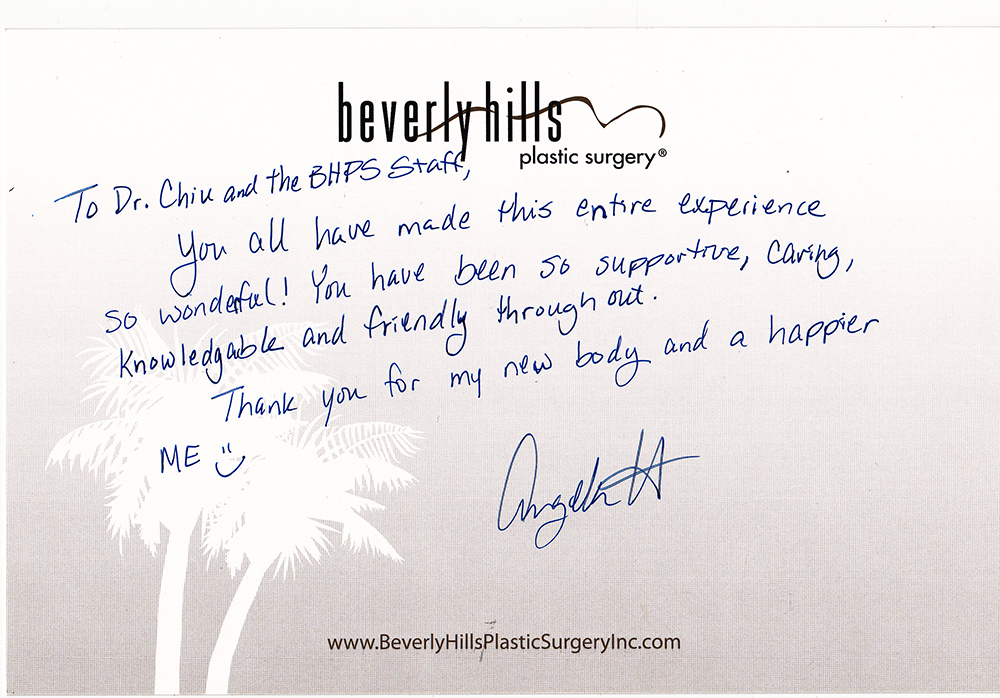 beverly hills
plastic surgery®
To Dr. Chiu and the BHPS Staff,
You all have made this entire experience
so wonderful! You have been so supportive, caring,
knowledgable and friendly through out.
Thank you for my new body and a happier
ME
Angela H
www.BeverlyHillsPlasticSurgeryInc.com